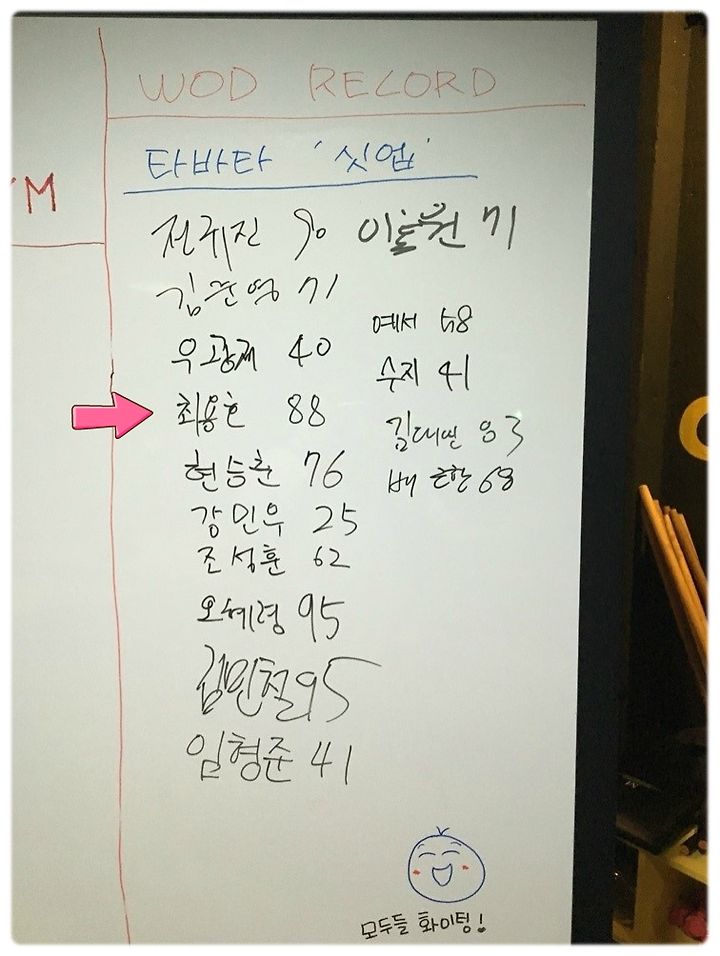 WOD RECORD
'M
타바타 '싯업'
전귀진 90
이동원 71
김준영 71
우광재 40
최용호 88
현승훈 76
강민우 25
조석훈 62
오혜령 95
김민철 95
임형준 41
예서 58
수지 41
김대씬 83
배은한 68
모두들 화이팅!